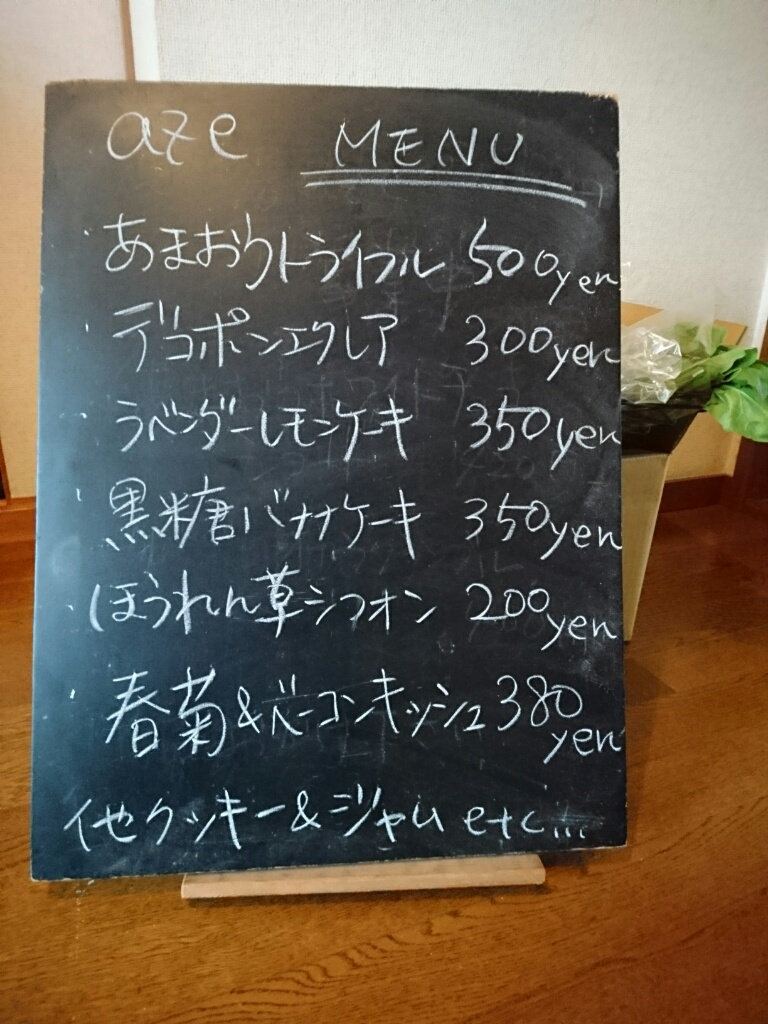 aze MENU
・あまおうトライフル 500yen
・デコポンエクレア 300yen
・ラベンダーレモンケーキ 350yen
・黒糖バナナケーキ 350yen
・ほうれん草シフォン 200yen
・春菊&ベーコンキッシュ 380
yen
他クッキー&ジャム etc...